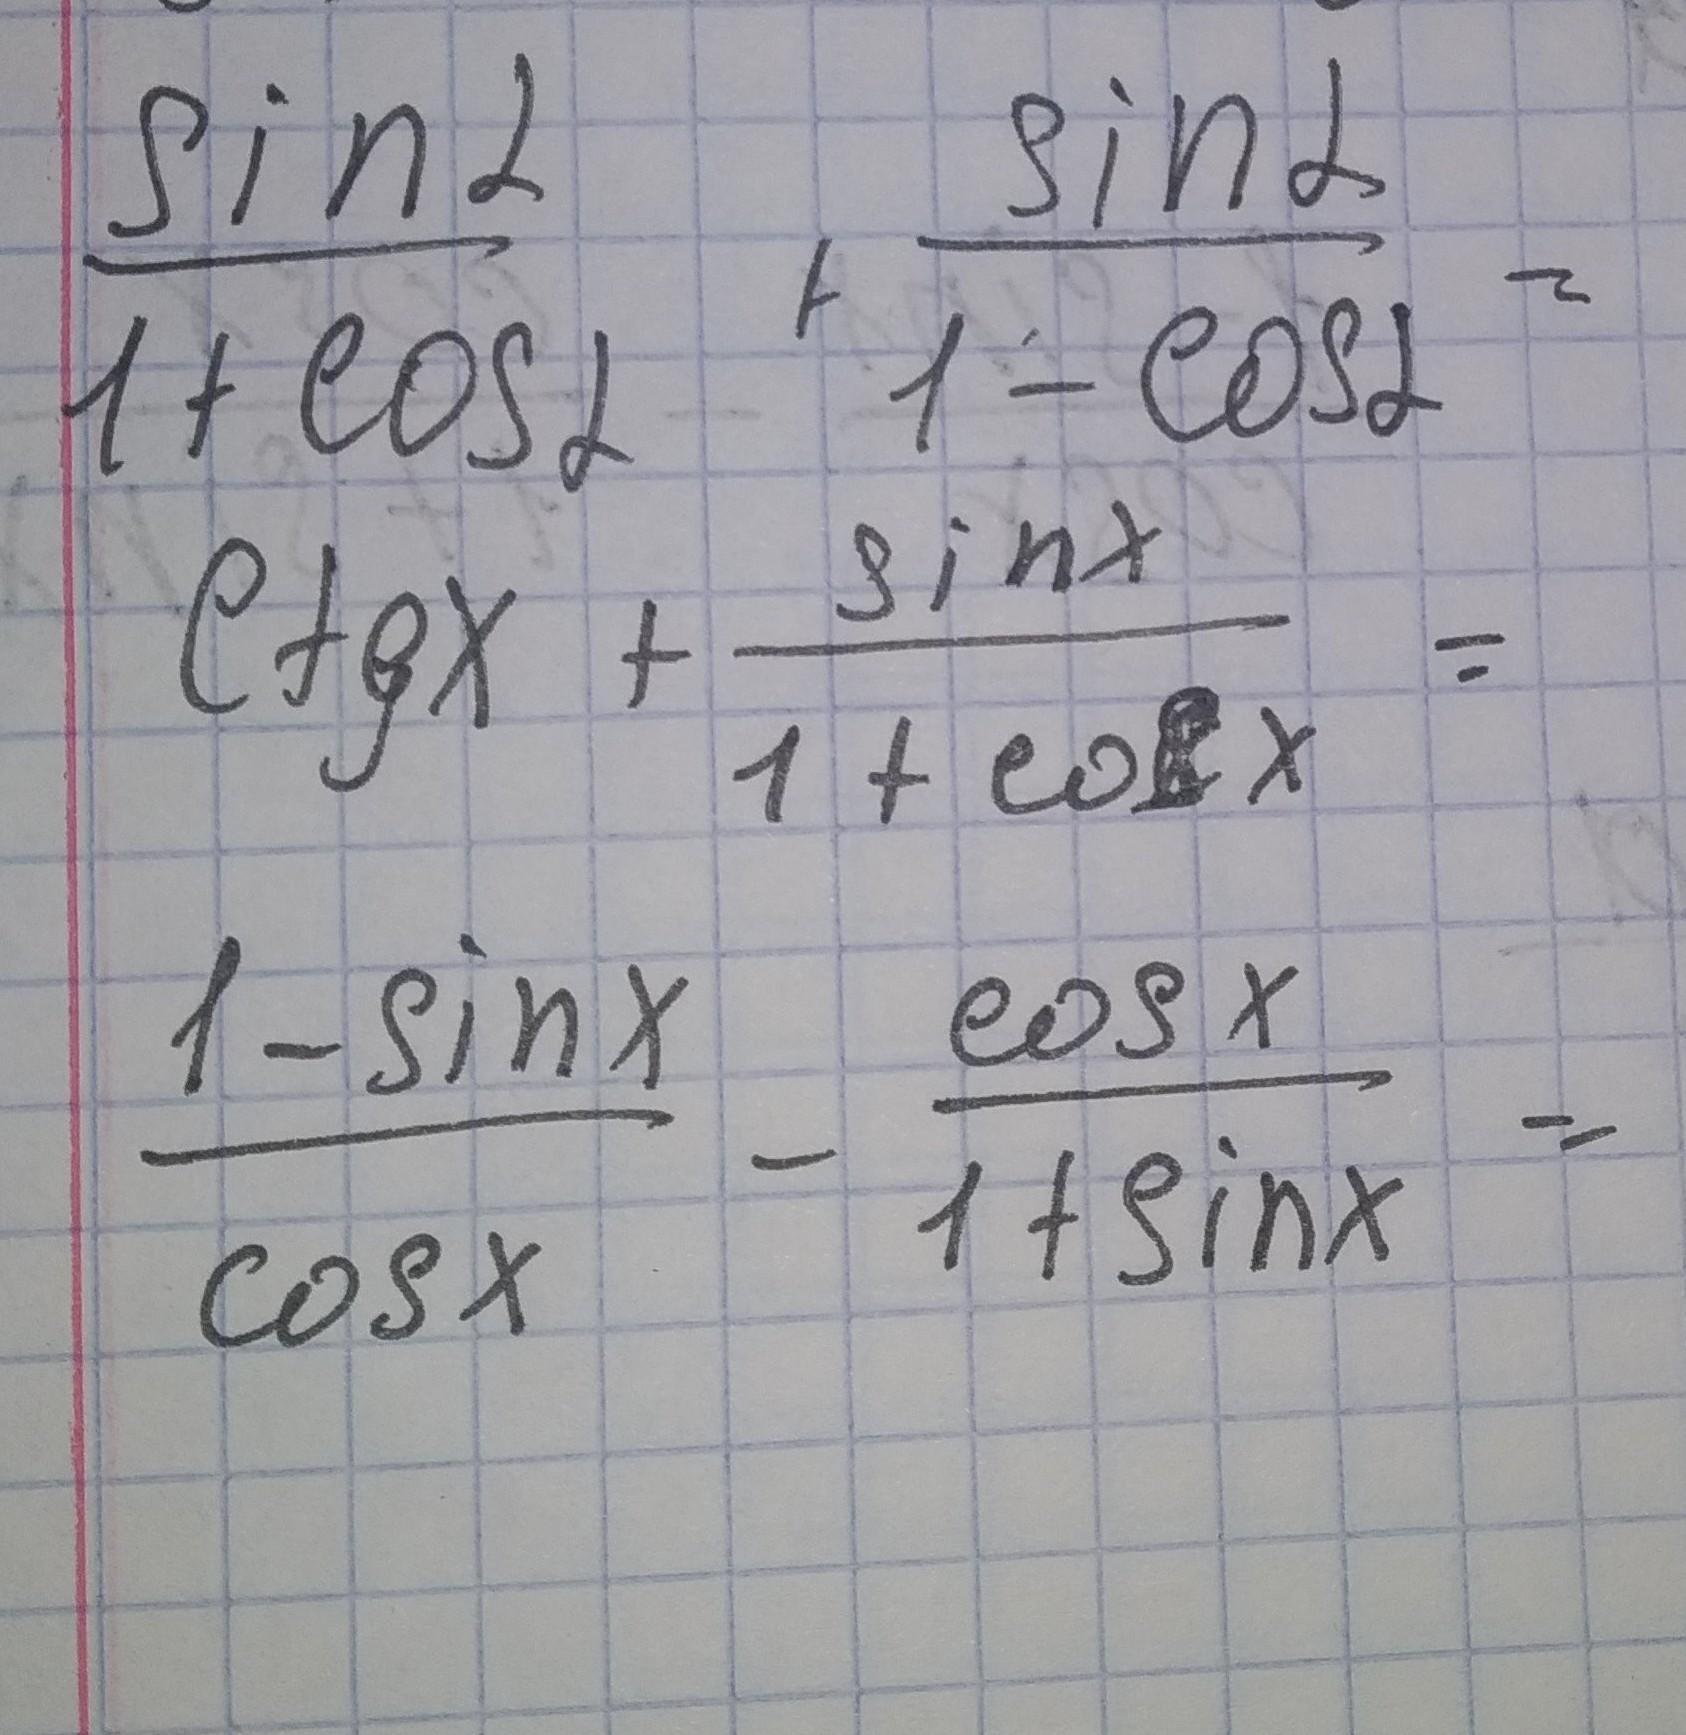 sinα / 1 + cosα + sinα / 1 - cosα =
ctgx + sinx / 1 + cosx =
1 - sinx / cosx - cosx / 1 + sinx =